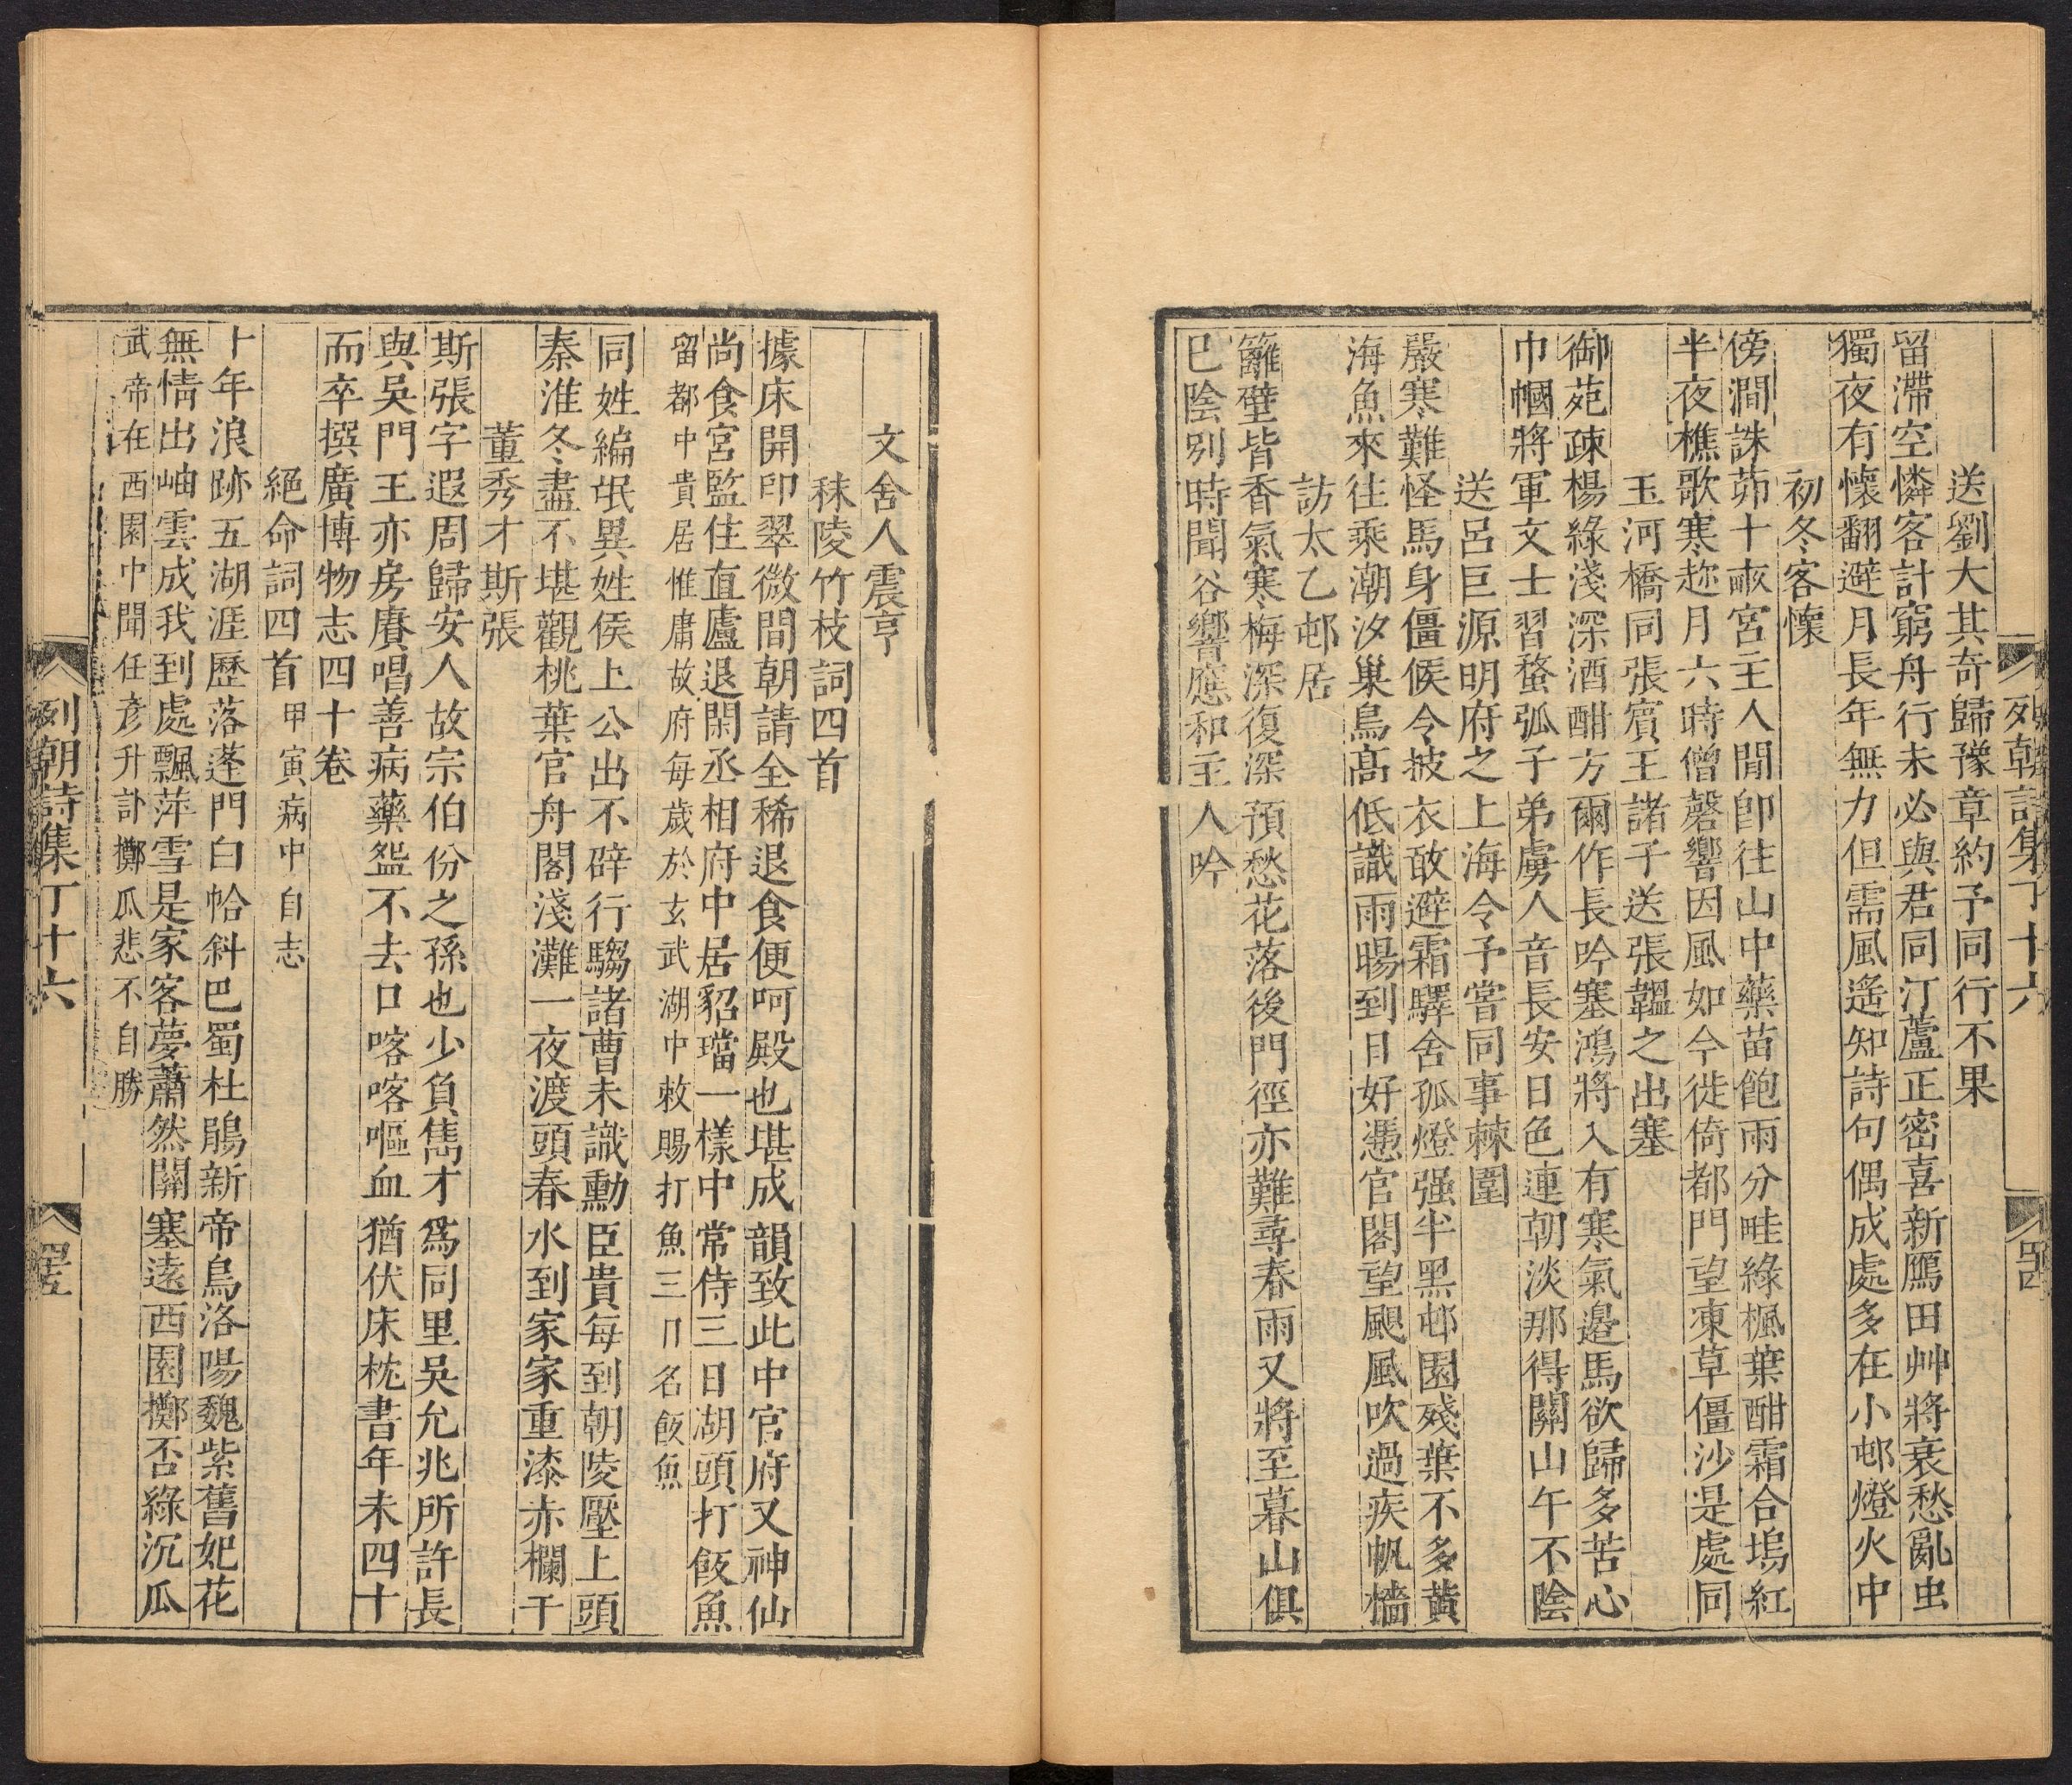 列朝詩集丁十六
送劉大其奇歸豫章約予同行不果
留滯空憐客計窮舟行未必與君同汀蘆正密喜新鴈田艸將衰愁亂虫
獨夜有懷翻避月長年無力但需風遙知詩句偶成處多在小邨燈火中
初冬客懷
傍澗誅茆十畞宮主人閒卽往山中藥苗飽雨分畦綠楓葉酣霜合塢紅
半夜樵歌寒趂月六時僧磬響因風如今徙倚都門望凍草僵沙是處同
玉河橋同張賓王諸子送張韞之出塞
御苑疎楊綠淺深酒酣方爾作長吟塞鴻將入有寒氣邉馬欲歸多苦心
巾幗將軍文士習螯弧子弟虜人音長安日色連朝淡那得關山午不陰
送呂巨源明府之上海令予嘗同事棘圍
嚴寒難怪馬身僵候令披衣敢避霜驛舍孤燈强半黑邨園殘葉不多黄
海魚來往乘潮汐巢鳥髙低識雨暘到日好憑官閣望颶風吹過疾帆檣
訪太乙邨居
籬壁皆香氣寒梅深復深預愁花落後門徑亦難尋春雨又將至暮山俱
巳陰别時聞谷響應和主人吟
文舍人震亨
秣陵竹枝詞四首
據床開印翠微間朝請全稀退食便呵殿也堪成韻致此中官府又神仙
尚食宮監住直廬退閑丞相府中居貂璫一樣中常侍三日湖頭打飯魚
留都中貴居惟庸故府每歲於玄武湖中敕賜打魚三日名飯魚
同姓編氓異姓侯上公出不辟行騶諸曹未識勳臣貴每到朝陵壓上頭
秦淮冬盡不堪觀桃葉官舟閣淺灘一夜渡頭春水到家家重漆赤欄干
董秀才斯張
斯張字遐周歸安人故宗伯份之孫也少負雋才爲同里吳允兆所許長
與吳門王亦房賡唱善病藥盌不去口喀喀嘔血猶伏床枕書年未四十
而卒撰廣博物志四十卷
絕命詞四首甲寅病中自志
十年浪跡五湖涯歷落蓬門白帢斜巴蜀杜鵑新帝鳥洛陽魏紫舊妃花
無情出岫雲成我到處飄萍雪是家客夢蕭然關塞遠西園擲否綠沉瓜
武帝在西園中聞任彦升訃擲瓜悲不自勝
列朝詩集丁十六